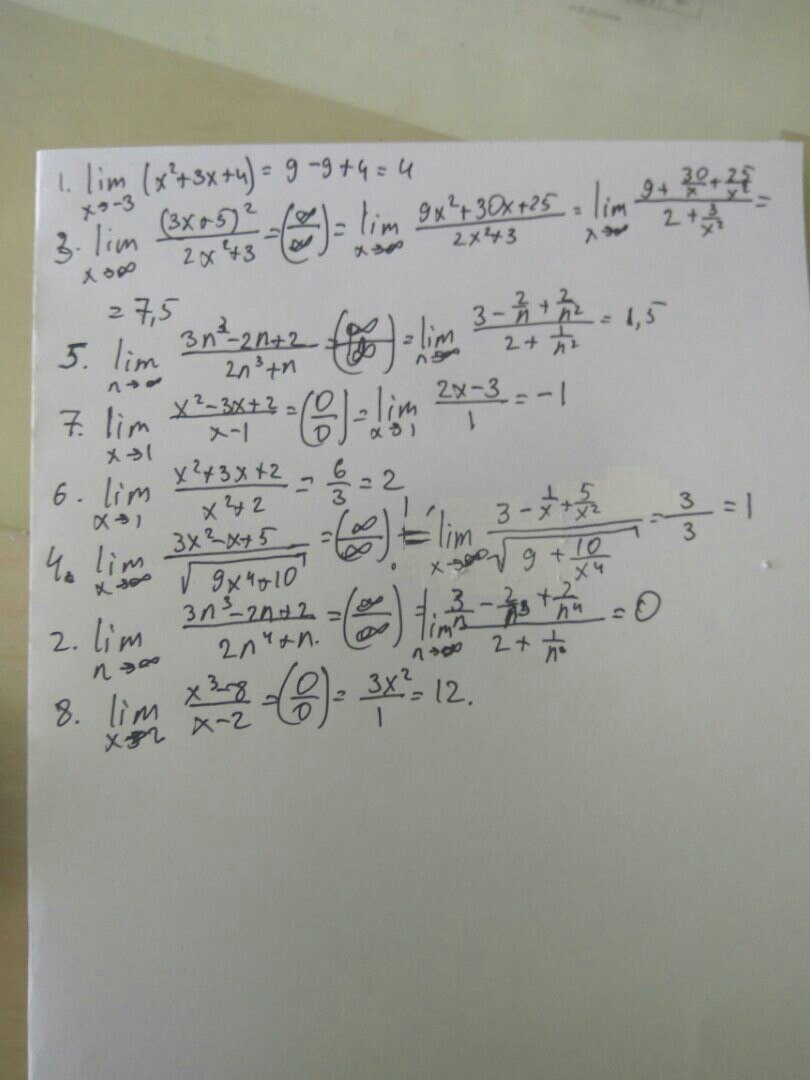 1. lim x→-3 (x²+3x+4) = 9-9+4 = 4
3. lim x→∞ (3x+5)²/(2x²+3) = (∞/∞) = lim x→∞ (9x²+30x+25)/(2x²+3) = lim x→∞ (9+30/x+25/x²)/(2+3/x²) =
= 7,5
5. lim n→∞ (3n³-2n+2)/(2n³+n) = (∞/∞) = lim n→∞ (3-2/n+2/n²)/(2+1/n²) = 1,5
7. lim x→1 (x²-3x+2)/(x-1) = (0/0) = lim x→1 (2x-3)/1 = -1
6. lim x→1 (x²+3x+2)/(x²+2) = 6/3 = 2
4. lim x→∞ (3x²-x+5)/√(9x⁴+10) = (∞/∞) = lim x→∞ (3-1/x+5/x²)/√(9+10/x⁴) = 3/3 = 1
2. lim n→∞ (3n³-2n+2)/(2n⁴+n) = (∞/∞) = lim n→∞ (3/n-2/n³+2/n⁴)/(2+1/n³) = 0
8. lim x→2 (x³-8)/(x-2) = (0/0) = 3x²/1 = 12.